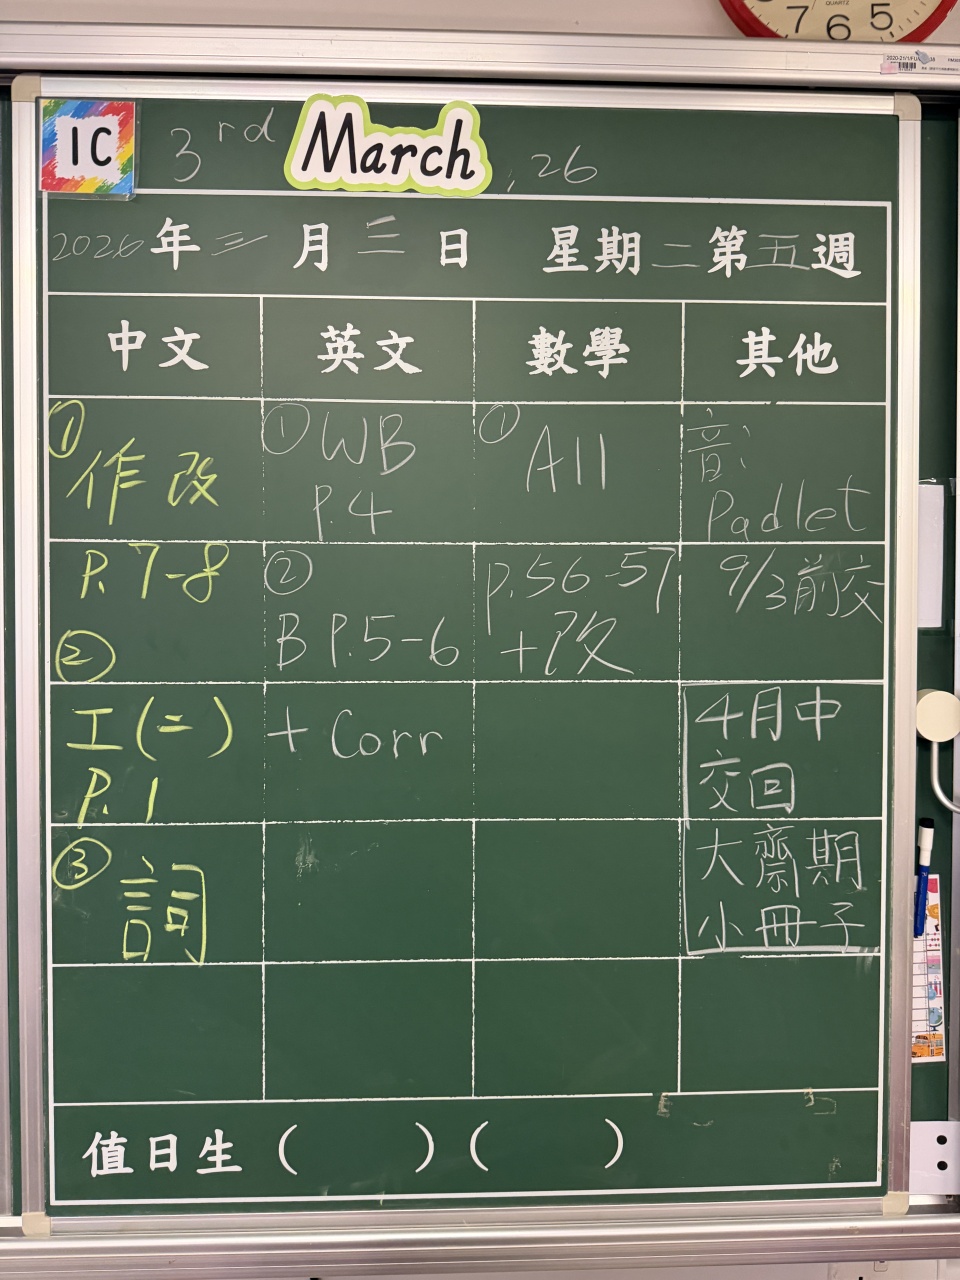 7 6 5
QUARTZ
1C
3rd March, 26
2026年三月三日 星期二第五週
中文 英文 數學 其他
① 作改
P.7-8
② 工(二)
P.1
③ 詞
① WB
P.4
② B P.5-6
+ Corr
① A11
p.56-57
+改
音:
Padlet
9/3前交
4月中
交回
大齋期
小冊子
值日生 ( ) ( )